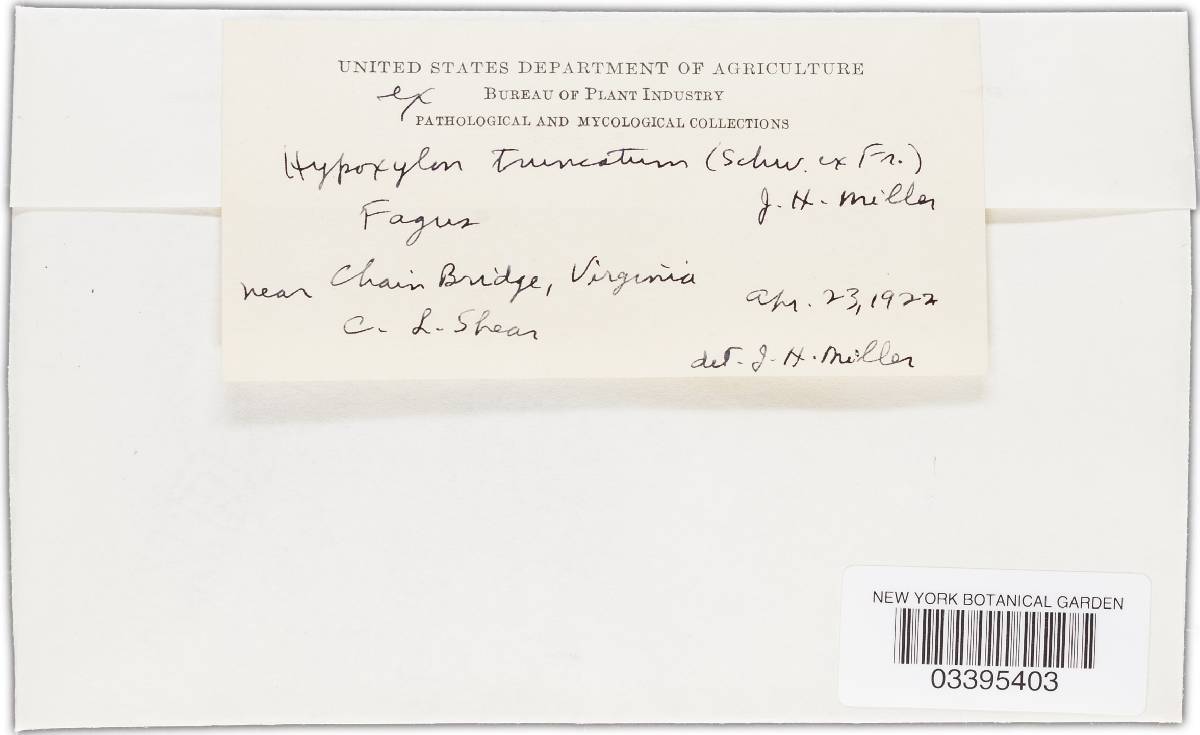 UNITED STATES DEPARTMENT OF AGRICULTURE
ex BUREAU OF PLANT INDUSTRY
PATHOLOGICAL AND MYCOLOGICAL COLLECTIONS
Hypoxylon truncatum (Schw. ex Fr.)
J. H. Miller
Fagus
near Chain Bridge, Virginia
Apr. 23, 1922
C. L. Shear
det. J. H. Miller
NEW YORK BOTANICAL GARDEN
03395403